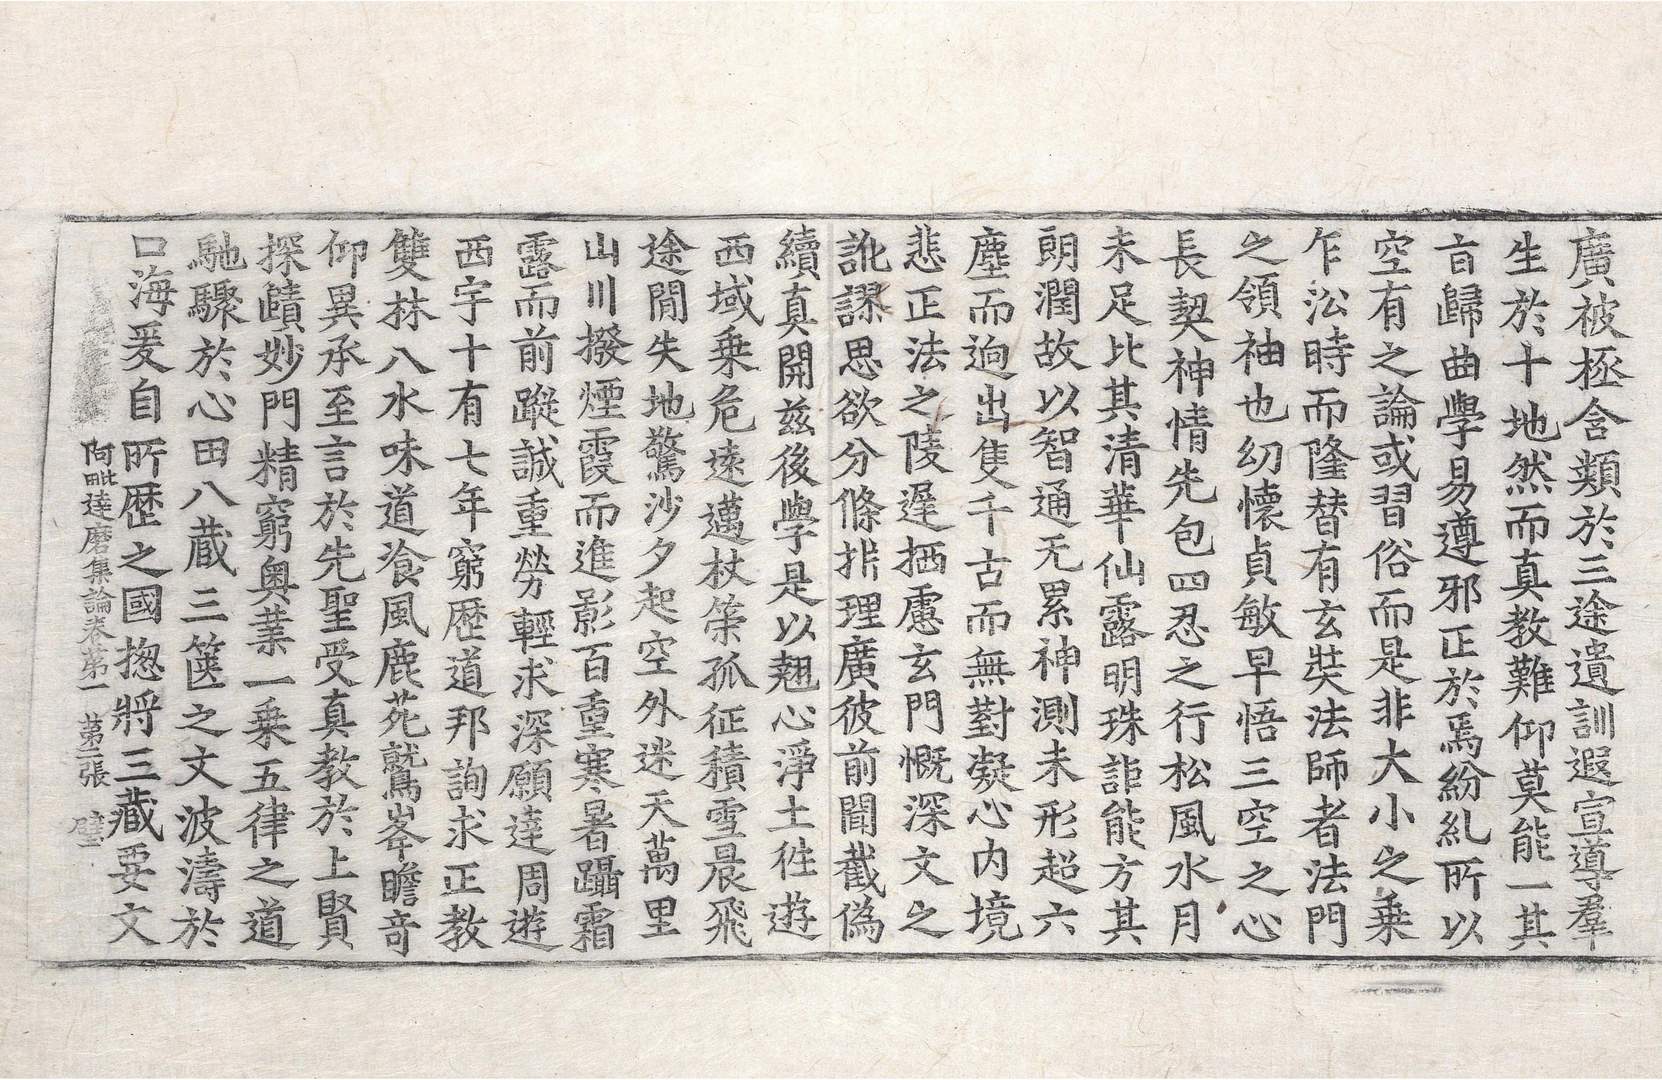 廣被拯含類於三途遺訓遐宣導羣
生於十地然而真教難仰莫能一其
旨歸曲學易遵邪正於焉紛糺所以
空有之論或習俗而是非大小之乗
乍㳂時而隆替有玄奘法師者法門
之領袖也幼懷貞敏早悟三空之心
長契神情先包四忍之行松風水月
未足比其清華仙露明珠詎能方其
朗潤故以智通无累神測未形超六
塵而逈出隻千古而無對凝心内境
悲正法之陵遲栖慮玄門慨深文之
訛謬思欲分條㭊理廣彼前聞截偽
續真開兹後學是以翹心淨土徃遊
西域乗危遠邁杖䇿孤征積雪晨飛
途閒失地驚沙夕起空外迷天萬里
山川撥煙霞而進影百重寒暑躡霜
露而前蹤誠重勞輕求深願達周遊
西宇十有七年窮歷道邦詢求正教
雙林八水味道湌風鹿苑鷲峯瞻竒
仰異承至言於先聖受真教於上賢
探賾妙門精窮奥業一乗五律之道
馳驟於心田八蔵三篋之文波濤於
口海爰自所歷之國揔將三藏要文
阿毗達磨集論卷第一 第二張 壁